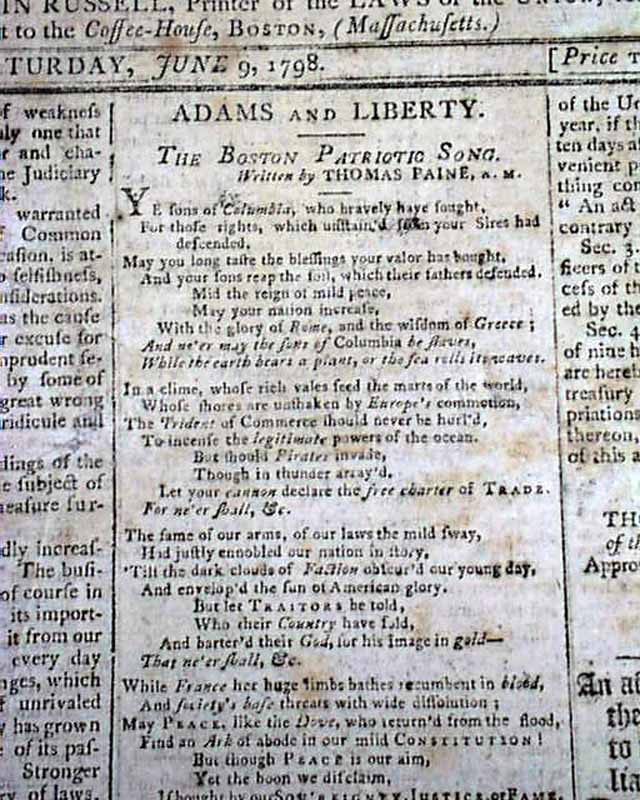 IN RUSSELL, Printer of the LAWS of the UNION,
t to the Coffee-Houſe, BOSTON, (Maſſachuſetts.)
TURDAY, JUNE 9, 1798.
[Price
of weakneſs
ly one that
er and cha-
he Judiciary
k.
warranted
f Common
caſion, is at-
o ſelfiſhneſs,
nſiderations.
as the cauſe
r excuſe for
mprudent ſe-
by ſome of
great wrong
ridicule and
dings of the
e ſubject of
eaſure fur-
dly increaſ-
The buſi-
of courſe in
its import-
it from our
every day
nges, which
f unrivaled
y has grown
e of its paſ-
Stronger
y of laws,
ADAMS AND LIBERTY.
THE BOSTON PATRIOTIC SONG.
Written by THOMAS PAINE, A. M.
YE ſons of Columbia, who bravely have fought,
For thoſe rights, which unſtain'd from your Sires had
deſcended,
May you long taſte the bleſſings your valor has bought,
And your ſons reap the ſoil, which their fathers defended.
Mid the reign of mild peace,
May your nation increaſe,
With the glory of Rome, and the wiſdom of Greece ;
And ne'er may the ſons of Columbia be ſlaves,
While the earth bears a plant, or the ſea rolls its waves.
In a clime, whoſe rich vales feed the marts of the world,
Whoſe ſhores are unſhaken by Europe's commotion,
The Trident of Commerce ſhould never be hurl'd,
To incenſe the legitimate powers of the ocean.
But ſhould Pirates invade,
Though in thunder array'd,
Let your cannon declare the free charter of TRADE.
For ne'er ſhall, &c.
The fame of our arms, of our laws the mild ſway,
Had juſtly ennobled our nation in ſtory,
'Till the dark clouds of Faction obſcur'd our young day,
And envelop'd the ſun of American glory.
But let TRAITORS be told,
Who their Country have ſold,
And barter'd their God, for his image in gold—
That ne'er ſhall, &c.
While France her huge limbs bathes recumbent in blood,
And ſociety's baſe threats with wide diſſolution ;
May PEACE, like the Dove, who return'd from the flood,
Find an Ark of abode in our mild CONSTITUTION !
But though PEACE is our aim,
Yet the boon we diſclaim,
If bought by our SOV'REIGNTY, JUSTICE, or FAME.
of the U
year, if th
ten days af
venient p
thing con
" An act
contrary
Sec. 3.
ficers of
ceſs of th
ed by the
Sec. 4.
of nine h
are hereb
treaſury
priation
thereon,
of this a
TH
of th
Appro
An a
the
to
lia